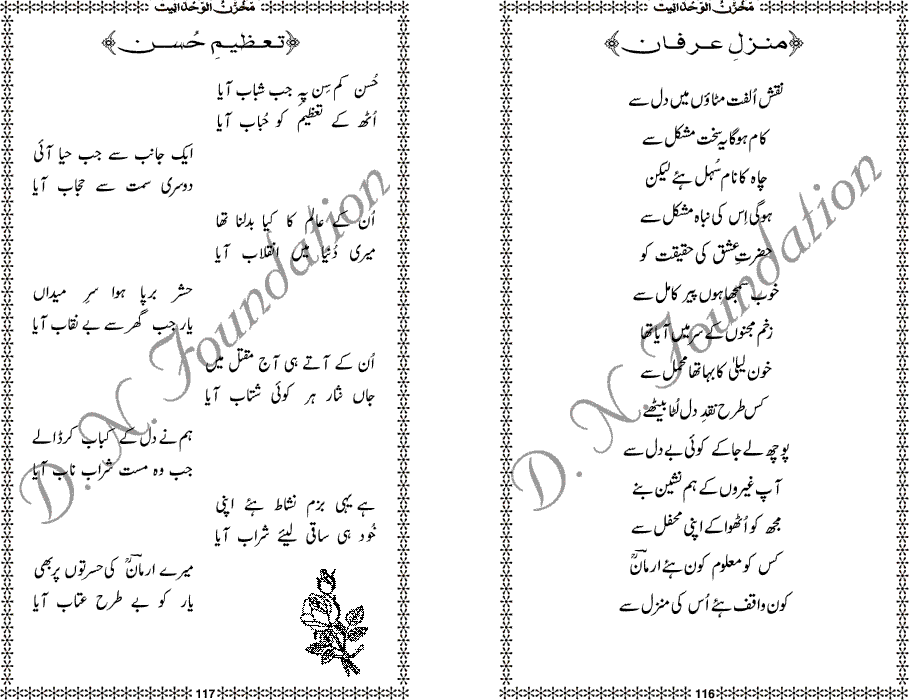 مخزن الوحدانیت
منزلِ عرفان
نقش اُلفت مٹاؤں میں دل سے
کام ہوگا یہ سخت مشکل سے
چاہ کا نام سُہل ہئے لیکن
ہوگی اِس کی نباہ مشکل سے
حضرتِ عشق کی حقیقت کو
خوب سمجھا ہوں پیر کامل سے
زخم مجنوں کے سر میں آیا تھا
خون لیلیٰ کا بہا تھا محمل سے
کس طرح نقدِ دل لُٹا بیٹھے
پوچھ لے جا کے کوئی بے دل سے
آپ غیروں کے ہم نشین بنے
مجھ کو اُٹھوا کے اپنی محفل سے
کس کو معلوم کون ہئے ارمانؔ
کون واقف ہئے اُس کی منزل سے
116
مخزن الوحدانیت
تعظیمِ حُسن
حُسن کم سِن پہ جب شباب آیا
اُٹھ کے تعظیم کو حُباب آیا
ایک جانب سے جب حیا آئی
دوسری سمت سے حجاب آیا
اُن کے عالم کا کیا بدلنا تھا
میری دُنیا میں انقلاب آیا
حشر برپا ہوا سرِ میداں
یار جب گھر سے بے نقاب آیا
اُن کے آتے ہی آج مقتل میں
جاں نثار ہر کوئی شتاب آیا
ہم نے دل کے کباب کر ڈالے
جب وہ مست شراب ناب آیا
ہے یہی بزم نشاط ہئے اپنی
خُود ہی ساقی لیئے شراب آیا
میرے ارمانؔ کی حسرتوں پر بھی
یار کو بے طرح عتاب آیا
117
D. N. Foundation
D. N. Foundation